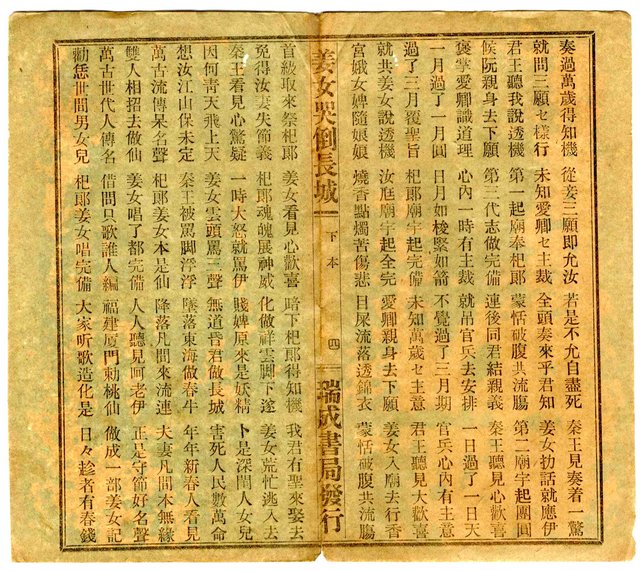 奏過萬歲得知機 從妾三願即允汝 若是不允自盡死 秦王見奏着一驚
就問三願セ樣行 未知愛卿セ主裁 全頭奏來乎君知 姜女抝話就應伊
君王聽我說透機 第一起廟奉杞郎 蒙恬破腹共流膓 第二廟宇起團圓
候阮親身去下願 第三代志做完備 連後同君結親義 秦王聽見心歡喜
褒掌愛卿識道理 心內一時有主裁 就吊官兵去安排 一日過了一日天
一月過了一月圓 日月如梭緊如箭 不覺過了三月期 官兵心內有主意
過了三月覆聖旨 杞郎廟宇起完備 未知萬歲セ主意 君王聽見大歡喜
就共姜女說透機 汝尪廟宇起全完 愛卿親身去下願 姜女入廟去行香
宮娥女婢隨娘娘 燒香點燭苦傷悲 目屎流落透錦衣 蒙恬破腹共流膓
姜女哭倒長城 下本 四 瑞成書局發行
首級取來祭杞郎 姜女看見心歡喜 暗下杞郎得知機 我君有聖來娶去
免得汝妻失節義 杞郎魂魄展神威 化做祥雲脚下遂 姜女荒忙逃入去
秦王看見心驚疑 一時大怒就罵伊 賤婢原來是妖精 卜是深閨人女兒
因何青天飛上天 姜女雲頭罵三聲 無道昏君做長城 害死人民數萬命
想汝江山保未定 秦王被罵脚浮浮 墜落東海做春牛 年年新春人看見
萬古流傳呆名聲 杞郎姜女本是仙 降落凡間來流連 夫妻凡間木無緣
雙人相招去做仙 姜女唱了都完備 人人聽見呵老伊 正是守節好名聲
萬古世代人傳名 借問只歌誰人編 福建厦門勅桃仙 做成一部姜女記
勸恁世間男女兒 杞郎姜女唱完備 大家听歌造化是 日々趁者有春錢